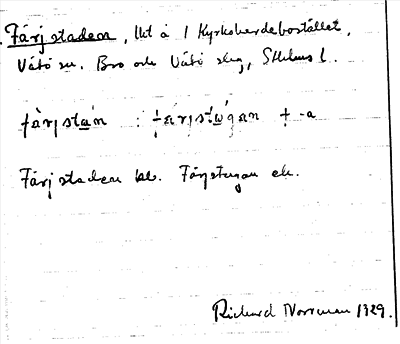 Färjstaden, lht å 1 Kyrkoherdebostället,
Vätö sn. Bro och Vätö skg, Sthlms l.
färjsta̲n : färjstω̲gan + -a
Färjstaden bl. Färjstugan ek.
Richard Norrman 1929.